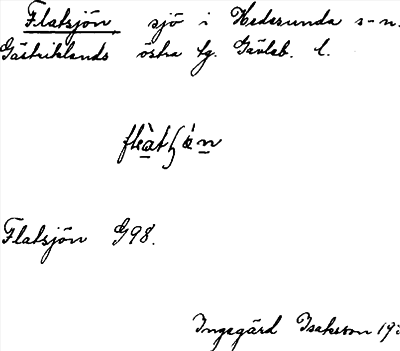 Flatsjön sjö i Hedesunda s-n.
Gästriklands östra tg. Gävleb. l.
Flatsjön G98.
Ingegärd Isaksson 19